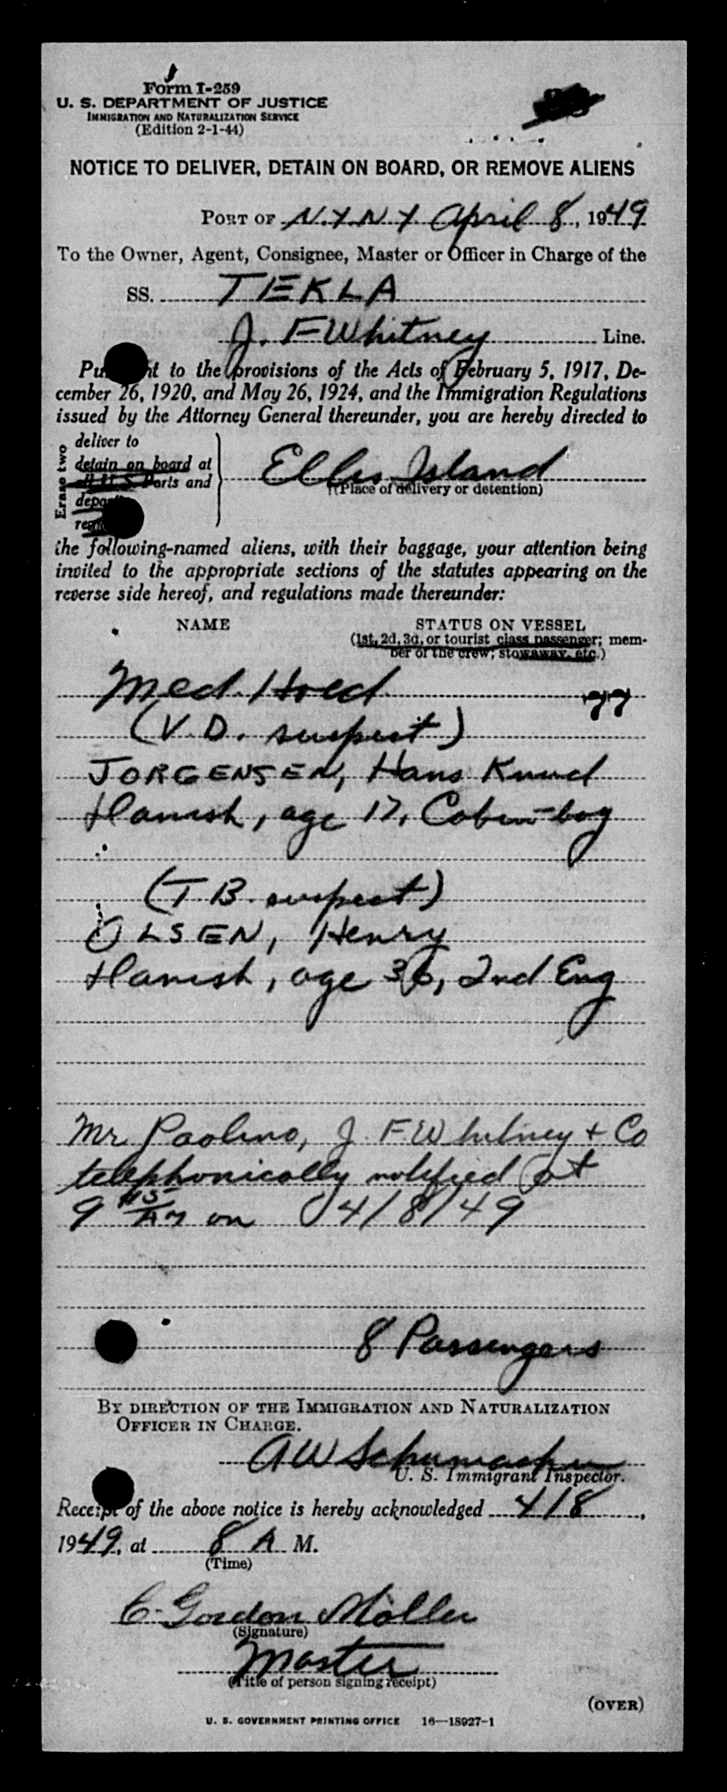 Form I-259
U. S. DEPARTMENT OF JUSTICE
IMMIGRATION AND NATURALIZATION SERVICE
(Edition 2-1-44)
NOTICE TO DELIVER, DETAIN ON BOARD, OR REMOVE ALIENS
PORT OF N.Y N Y April 8, 1949
To the Owner, Agent, Consignee, Master or Officer in Charge of the
SS. TEKLA
J. F Whitney Line.
Pursuant to the provisions of the Acts of February 5, 1917, De-
cember 26, 1920, and May 26, 1924, and the Immigration Regulations
issued by the Attorney General thereunder, you are hereby directed to
Erase two
deliver to
detain on board at
all U. S. Ports and
Ellis Island
(Place of delivery or detention)
the following-named aliens, with their baggage, your attention being
invited to the appropriate sections of the statutes appearing on the
reverse side hereof, and regulations made thereunder:
NAME STATUS ON VESSEL
(1st, 2d, 3d, or tourist class passenger; mem-
ber of the crew; stowaway, etc.)
Med. Hold 77
(V.D. suspect)
JORGENSEN, Hans Knud
Danish, age 17, Cabin-boy
(T B. suspect)
OLSEN, Henry
Danish, age 36, 2nd Eng
Mr Paolino, J F Whitney + Co
telephonically notified at
9 45 AM on 4/8/49
8 Passengers
BY DIRECTION OF THE IMMIGRATION AND NATURALIZATION
OFFICER IN CHARGE.
A W Schumacher
U. S. Immigrant Inspector.
Receipt of the above notice is hereby acknowledged 4/8,
1949, at 8 A M.
(Time)
C. Gordon Möller
(Signature)
Master
(Title of person signing receipt)
(OVER)
U. S. GOVERNMENT PRINTING OFFICE 16—18927-1